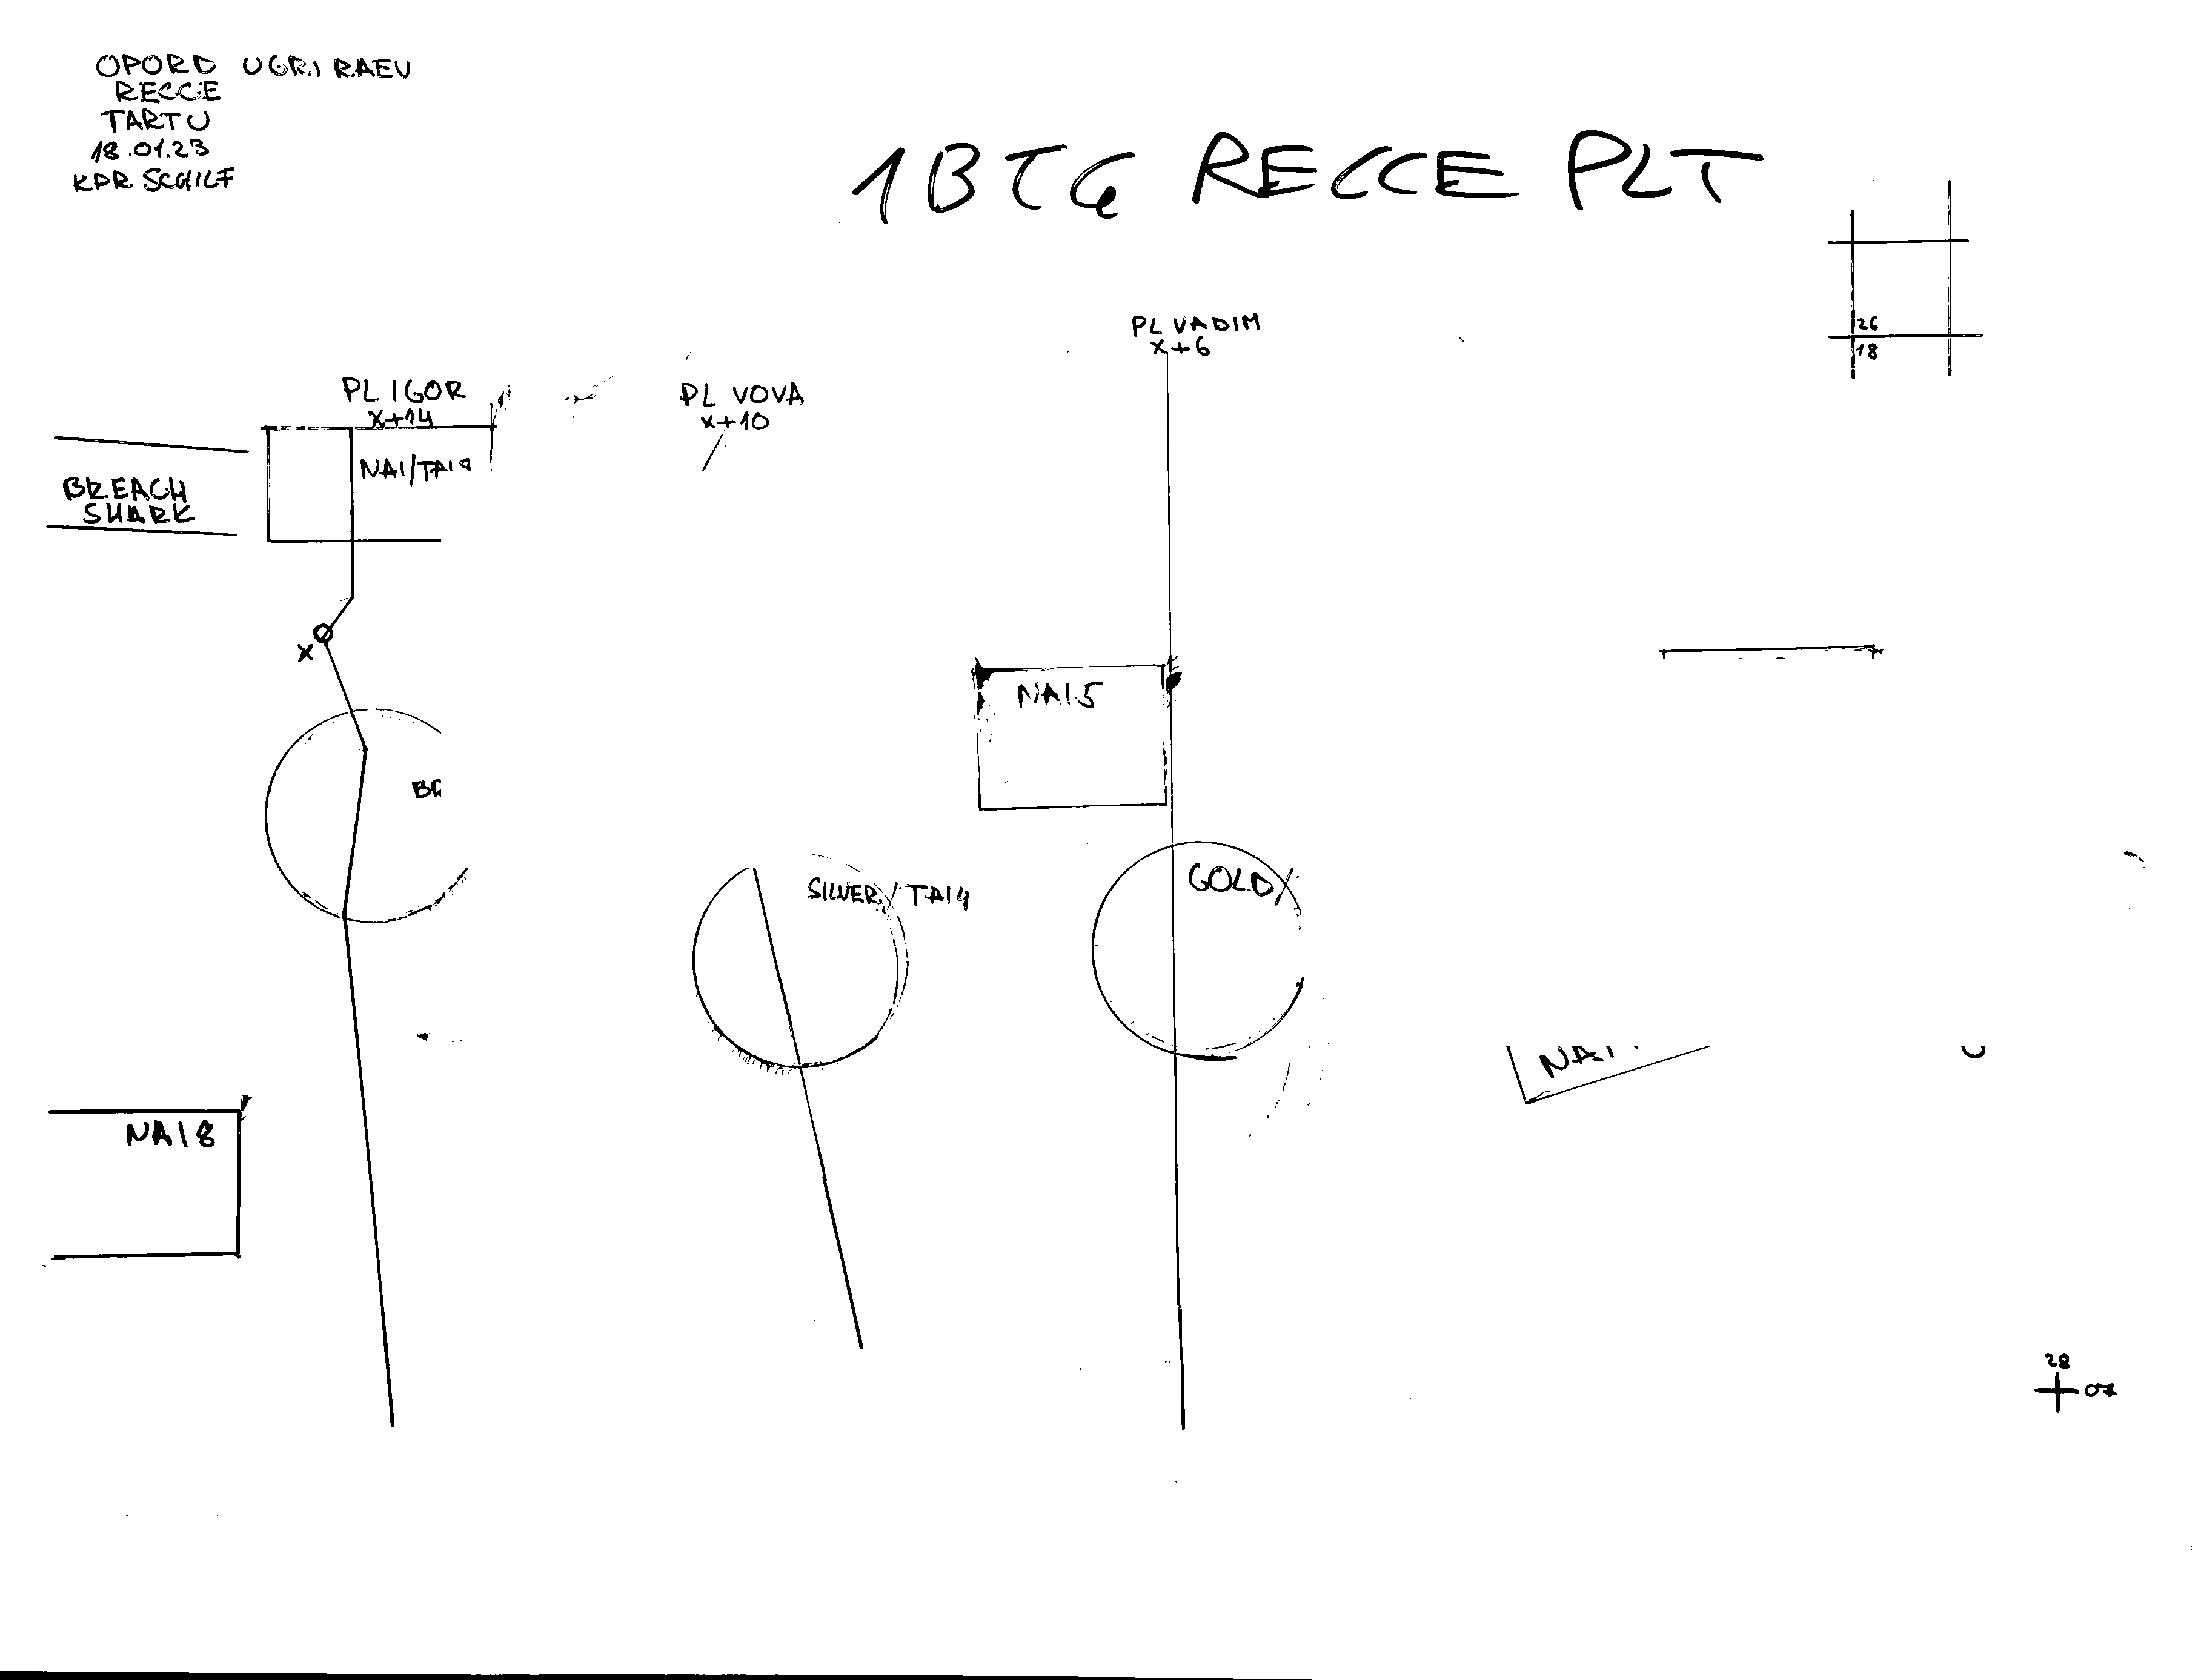 OPORD UGRI RAEV
RECCE
TARTU
18.01.23
KDR SCHILF
1BTG RECCE PLT
26
18
PL VADIM
X+6
PL IGOR
X+14
PL VOVA
X+10
NAI/TAI9
BREACH
SHARK
X
NAI5
SILVER/TAI4
GOLD/
NAI
NAI8
28
07